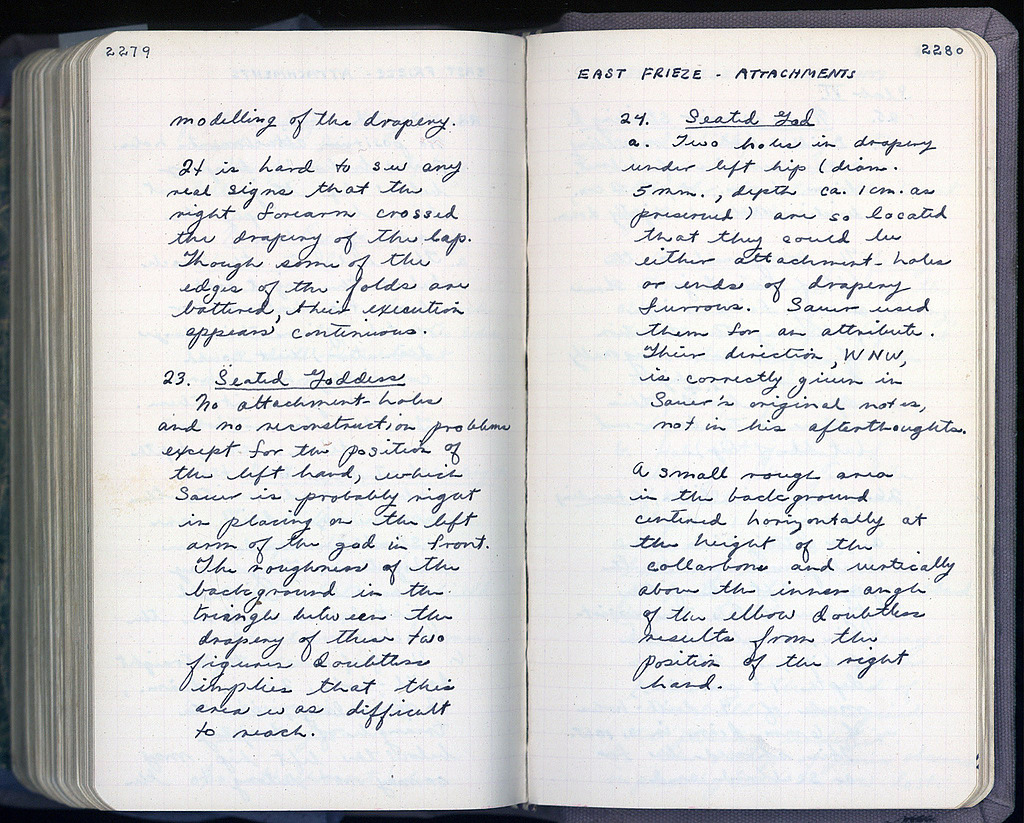 2279
modelling of the drapery.
It is hard to see any
real signs that the
right forearm crossed
the drapery of the lap.
Though some of the
edges of the folds are
battered, their execution
appears continuous.
23. Seated Goddess
No attachment-holes
and no reconstruction problems
except for the position of
the left hand, which
Sauer is probably right
in placing on the left
arm of the god in front.
The roughness of the
background in the
triangle between the
drapery of these two
figures doubtless
implies that this
area was difficult
to reach.
2280
EAST FRIEZE - ATTACHMENTS
24. Seated God
a. Two holes in drapery
under left hip (diam.
5 mm., depth ca. 1 cm. as
preserved) are so located
that they could be
either attachment-holes
or ends of drapery
furrows. Sauer used
them for an attribute.
Their direction, WNW,
is correctly given in
Sauer's original notes,
not in his afterthoughts.
A small rough area
in the background
centered horizontally at
the height of the
collarbone and vertically
above the inner angle
of the elbow doubtless
results from the
position of the right
hand.